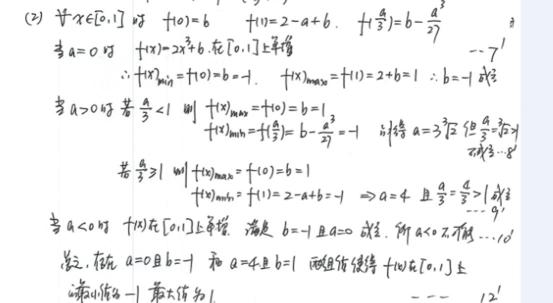 (2) ∀x∈[0,1]时 f(0)=b f(1)=2-a+b. f(a/3)=b-a³/27
当a=0时 f(x)=2x³+b.在[0,1]上单增 --7'
∴f(x)min=f(0)=b=-1. f(x)max=f(1)=2+b=1 ∴b=-1成立
当a>0时 若a/3<1 则 f(x)max=f(0)=b=1
f(x)min=f(a/3)=b-a³/27=-1 可得 a=3∛2 但a/3=∛2>1
不成立…8'
若a/3≥1 则f(x)max=f(0)=b=1
f(x)min=f(1)=2-a+b=-1 ⇒a=4 且a/3=4/3>1成立
----9'
当a<0时 f(x)在[0,1]上单增. 满足b=-1且a=0成立. 所a<0不可能…10'
总之,存在a=0且b=-1 和a=4且b=1 两组值使得f(x)在[0,1]上
的最小值为-1 最大值为1. --- 12'